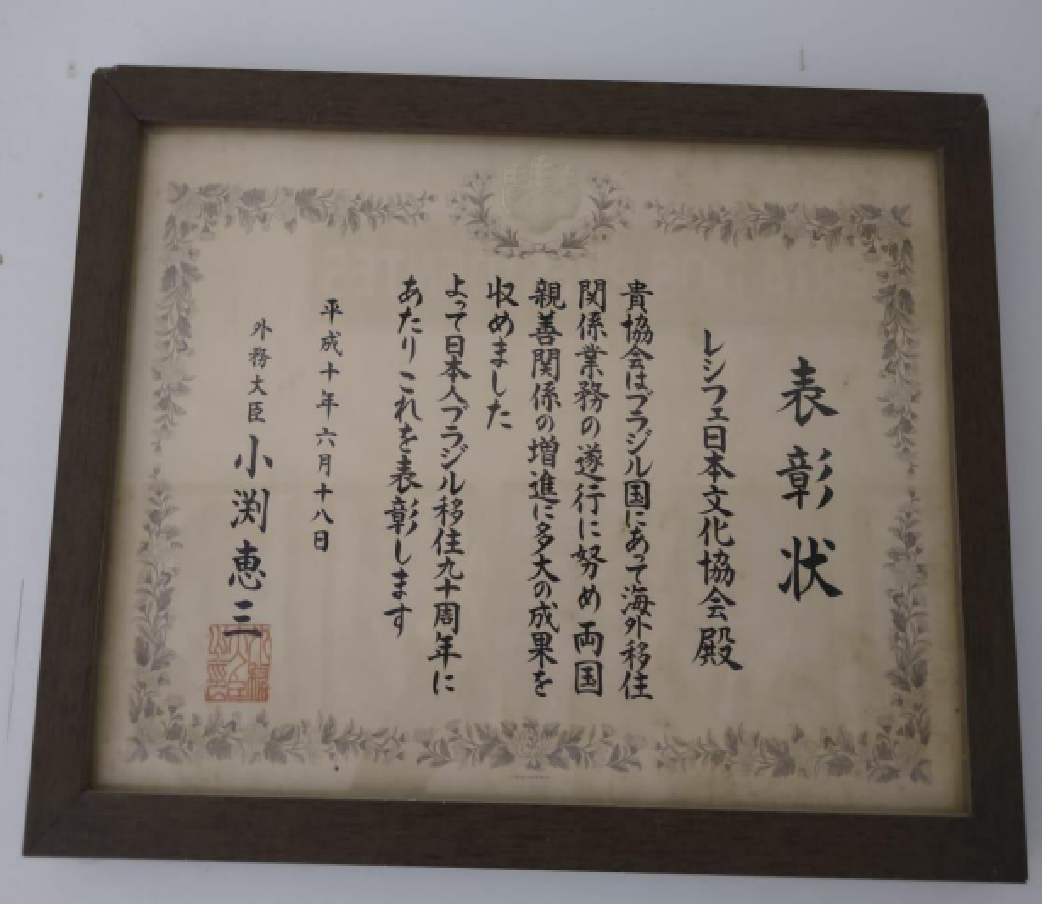 表彰状
レシフェ日本文化協会殿
貴協会はブラジル国にあって海外移住
関係業務の遂行に努め両国
親善関係の増進に多大の成果を
収めました
よって日本人ブラジル移住九十周年に
あたりこれを表彰します
平成十年六月十八日
外務大臣 小渕恵三